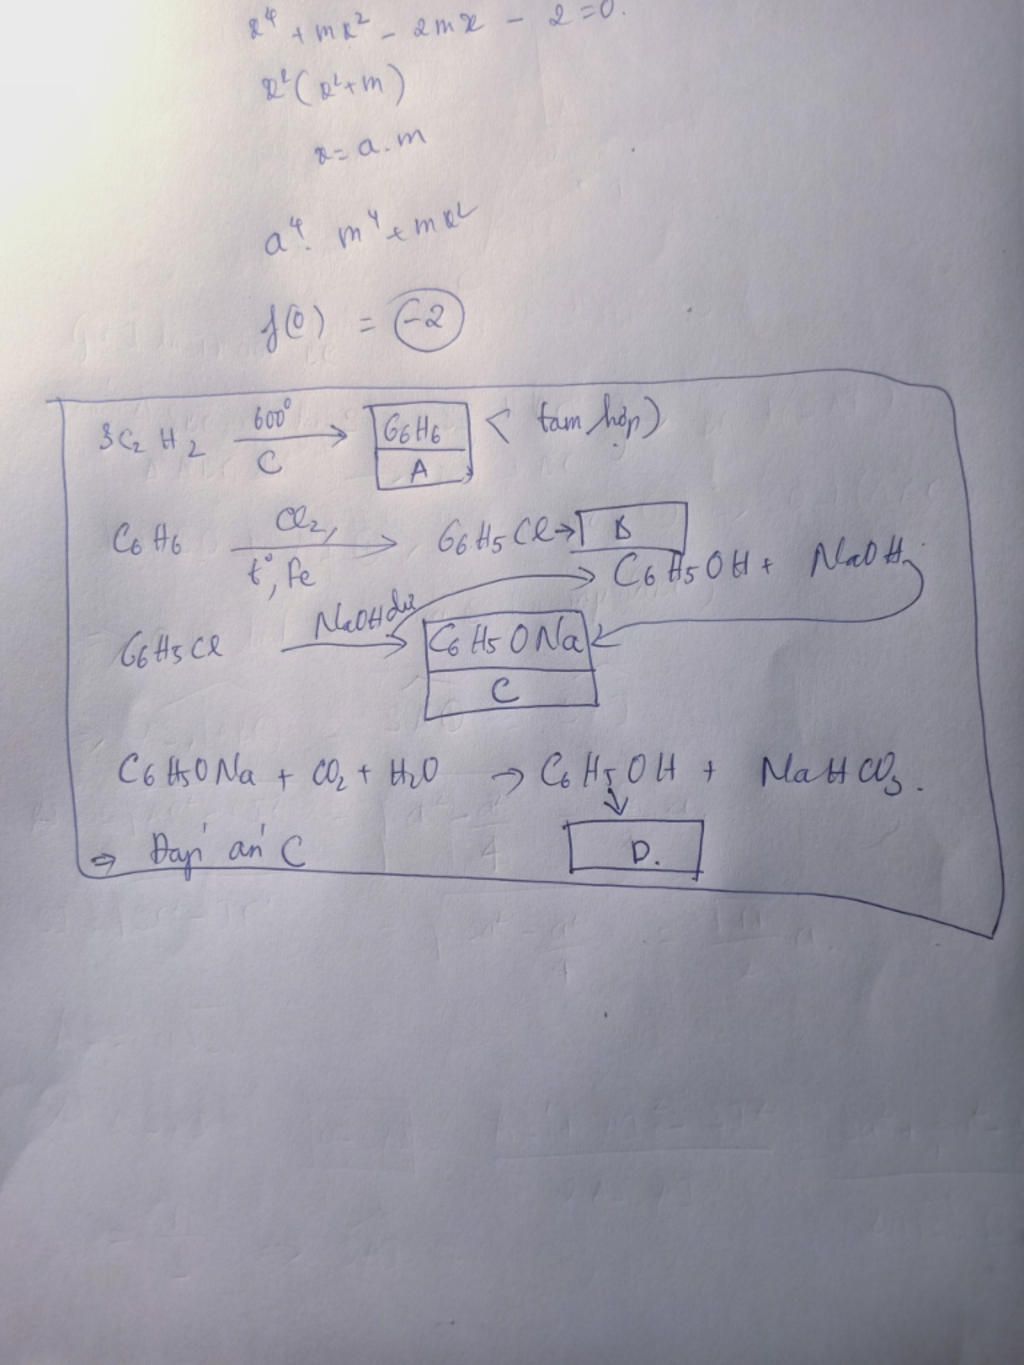 x⁴ + mx² - 2mx - 2 = 0.
x²(x²+m)
x = a.m
a⁴. m⁴ + mx²
f(0) = -2
3C₂H₂ 600° C → C₆H₆ A < tam hợp)
C₆H₆ Cl₂, t°, Fe → C₆H₅Cl → B
C₆H₅OH + NaOH
C₆H₅Cl NaOH dư → C₆H₅ONa C
C₆H₅ONa + CO₂ + H₂O → C₆H₅OH + NaHCO₃.
⇒ Đáp án C D.